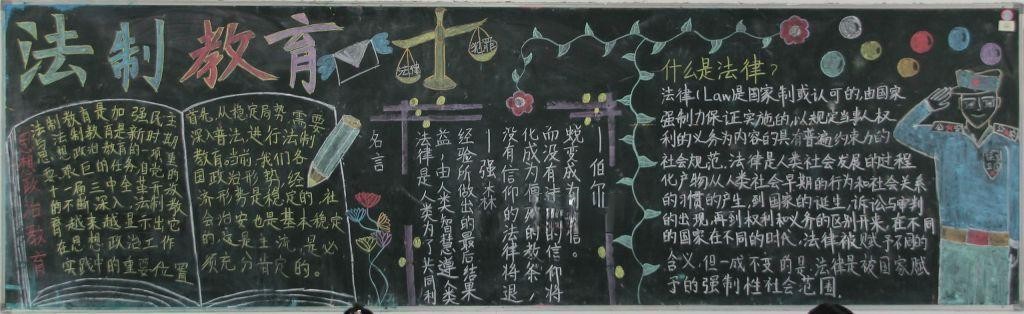 法制教育
法律
犯罪
思想政治教育
法制教育是加强民主
法制教育是新时期
思想政治教育的一项重
要艰巨的任务,自党的
十一届三中全会改
的不断深入,法制教
越来越显示出它
在思想政治工作
实践中的重要位置
首先,从稳定局势需要
深入普法,进行法制
教育。当前,我们各
国政治形势,经
济形势是稳定的,社
会治安也是基本稳定
的,这是主流,是必
须充分甘定的。
名言
法律是人类为了共同利
益,由人类智慧遵人类
经验所做出的最后结果
——强森
没有信仰的法律将退
化成为僵死的教条,
而没有法律的信仰将
蜕变成为信。
——伯尔
什么是法律?
法律(Law是国家制或认可的,由国家
强制力保证实施的,以规定当事人权
利的义务为内容的具有普遍约束力的
社会规范.法律是人类社会发展的过程
化产物,从人类社会早期的行为和社会关系
的习惯的产生,到国家的诞生,诉讼与审判
的出现,再到权利和义务的区别开来,在不同
的国家在不同的时代,法律被赋予不同的
含义,但一成不变的是,法律是被国家赋
予的强制性社会范围.